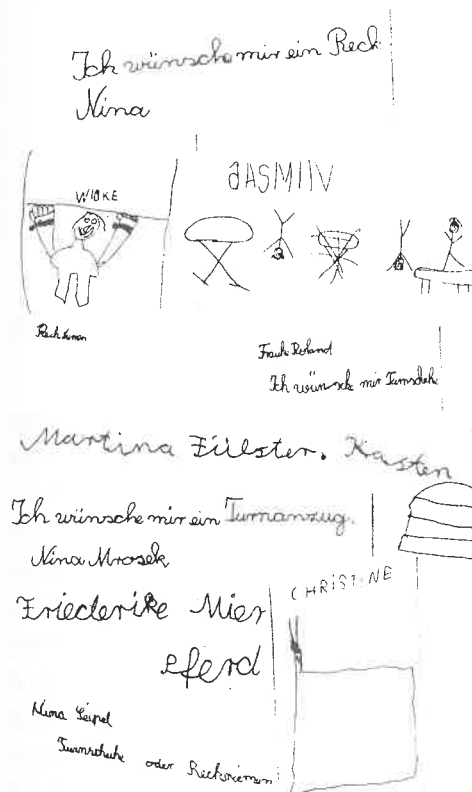 Ich wünsche mir ein Reck
Nina
WIBKE
JASMIN
Reckriemen
Frauke Roland
Ich wünsche mir Turnschuhe
Martina Fülster. Kasten
Ich wünsche mir ein Turnanzug.
Nina Mrosek
CHRISTINE
Friederike Mier
Pferd
Nina Seipel
Turnschuhe oder Reckriemen